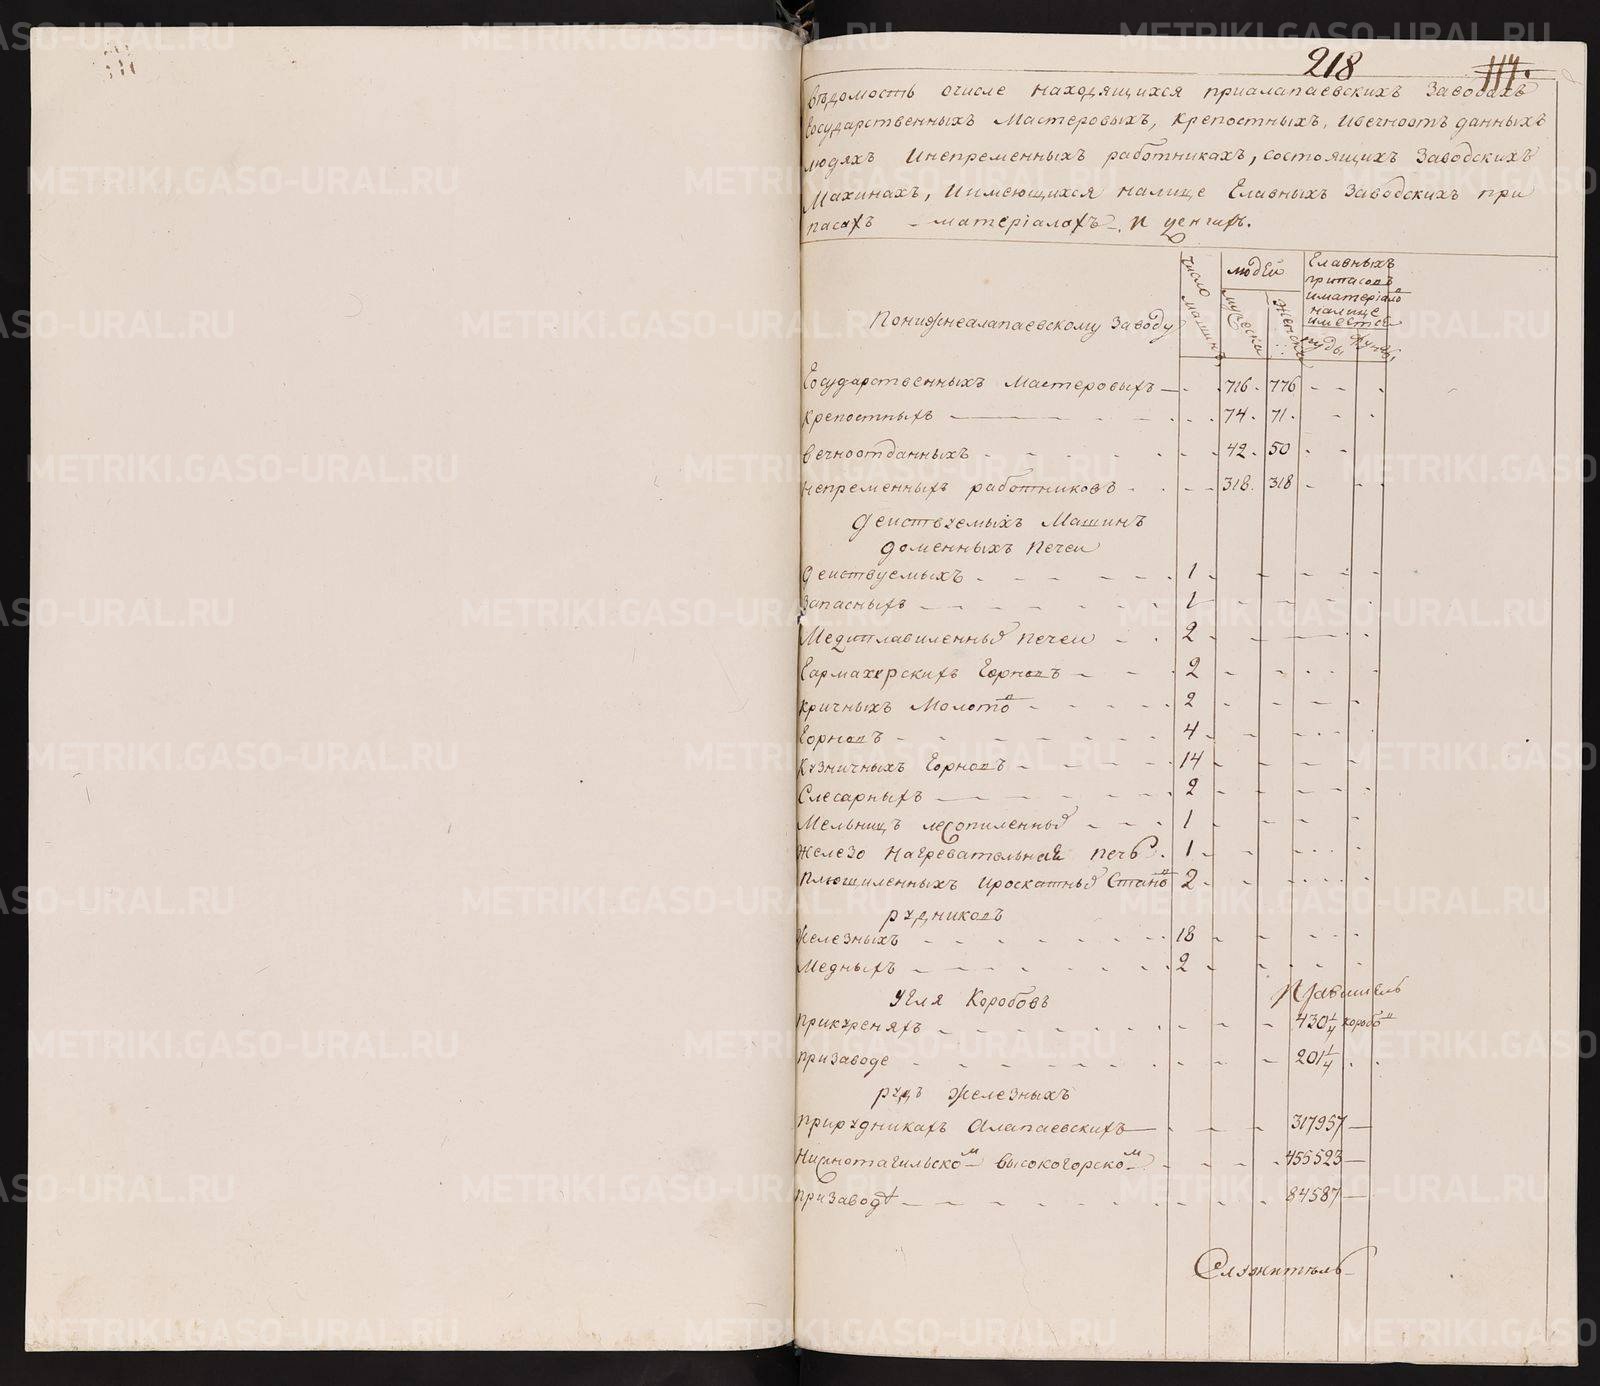 218
114.
Ведомость очисле находящихся приалапаевскихъ Заводахъ
Государственныхъ Мастеровыхъ, крепостныхъ, ивечноотъ данныхъ
людяхъ Инепременныхъ работникахъ, состоящихъ Заводскихъ
Махинахъ, Иимеющихся налице Главныхъ Заводскихъ при
пасахъ - материалахъ -
Понижнеалапаевскому Заводу
число машинъ
людей
мужеска
женска
Главныхъ
припасовъ
иматеріало
налице
имеется
пуды
фунты
Государственныхъ Мастеровыхъ 716 776
крепостныхъ 74 71
вечноотданныхъ 42 50
непременныхъ работниковъ 318 318
действуемыхъ Машинъ
доменныхъ печеи
действуемыхъ 1
запасныхъ 1
Медиплавиленныхъ печеи 2
Гармахерскихъ Горновъ 2
кричныхъ Молотовъ 2
Горновъ 4
кузничныхъ Горновъ 14
Слесарныхъ 2
Мельницъ лесопиленныхъ 1
железо нагревательная печь 1
плющиленныхъ ироскатныхъ Становъ 2
рудниковъ
железныхъ 18
медныхъ 2
угля Коробовъ
прикуреняхъ 430 1/4 коробовъ
призаводе 201 1/4
рудъ железныхъ
прирудникахъ Алапаевскихъ 317957
Нижнотагильскомъ высокогорскомъ 455523
призаводѣ 84587
METRIKI.GASO-URAL.RU